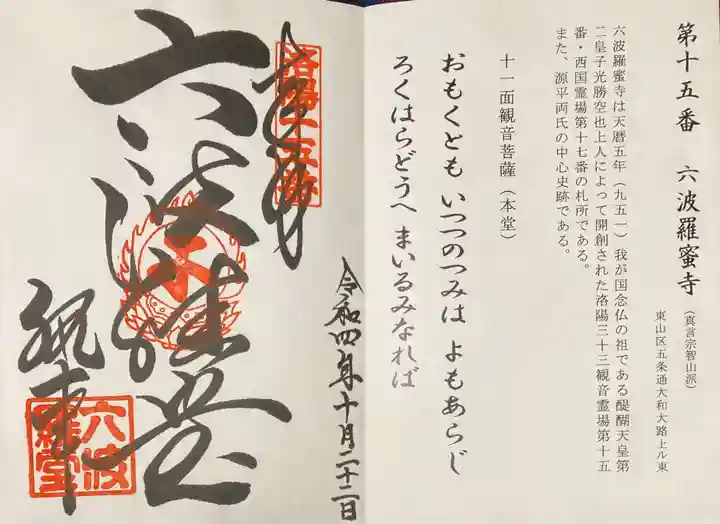 第十五番 六波羅蜜寺(真言宗智山派)
東山区五条通大和大路上ル東
六波羅蜜寺は天暦五年(九五一)我が国念仏の祖である醍醐天皇第
二皇子光勝空也上人によって開創された洛陽三十三観音霊場第十五
番・西国霊場第十七番の札所である。
また、源平両氏の中心史跡である。
十一面観音菩薩(本堂)
おもくとも いつつのつみは よもあらじ
ろくはらどうへ まいるみなれば
令和四年十月二十二日
洛陽十五番
六波羅堂
六波羅堂